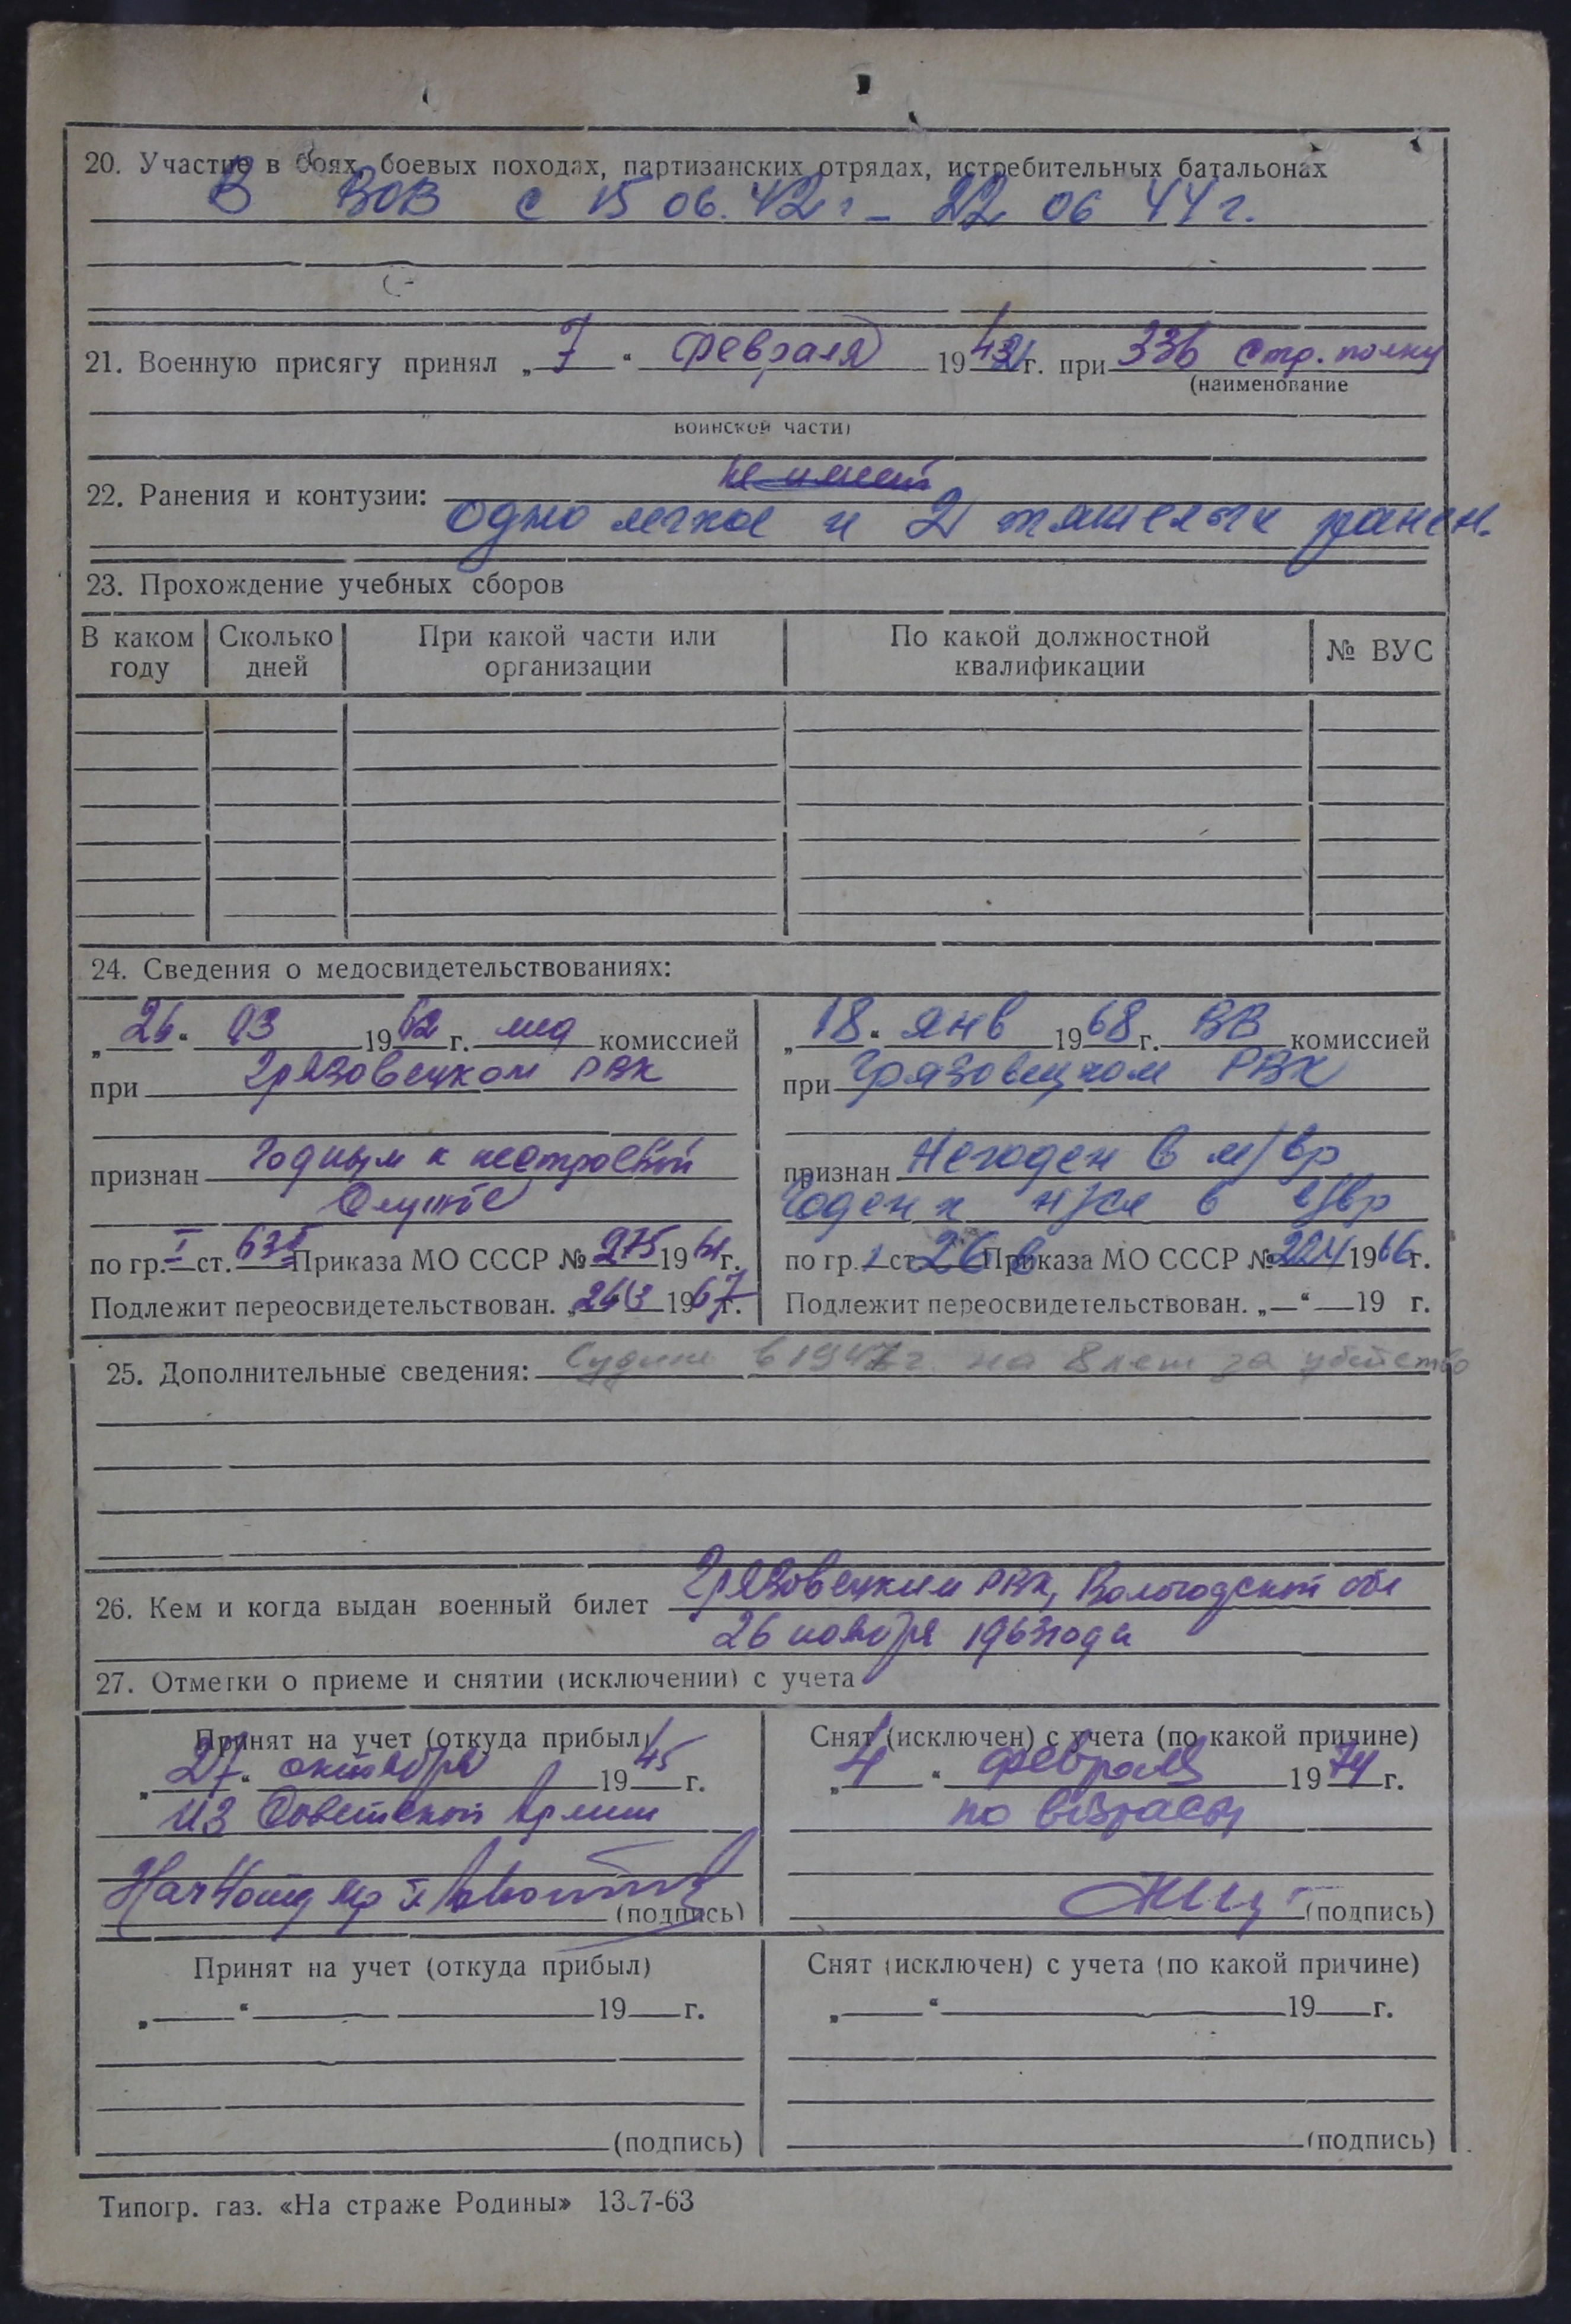 20. Участие в боях, боевых походах, партизанских отрядах, истребительных батальонах
В ВОВ с 15 06. 42 г – 22 06 44 г.
21. Военную присягу принял „7“ февраля 1942 г. при 336 стр. полку
(наименование
воинской части)
не имеет
22. Ранения и контузии:
одно легкое и 2 тяжелых ранен.
23. Прохождение учебных сборов
В каком году Сколько дней При какой части или организации По какой должностной квалификации № ВУС
24. Сведения о медосвидетельствованиях:
„26“ 03 1962 г. мед комиссией
при Грязовецком РВК
признан Годным к нестроевой
службе
по гр. I ст. 63 Приказа МО СССР № 275 19 г.
Подлежит переосвидетельствован. 1967 г.
„18“ янв 1968 г. ВВ комиссией
при Грязовецком РВК
признан Негоден в м/вр
Годен к н/сл в в/вр
по гр. 1 ст. 26 в Приказа МО СССР № 224 1966 г.
Подлежит переосвидетельствован. „—“ — 19 г.
25. Дополнительные сведения: Судим в 1947 г. на 8 лет за убийство
26. Кем и когда выдан военный билет Грязовецким РВК, Вологодской обл
26 ноября 1963 года
27. Отметки о приеме и снятии (исключении) с учета
Принят на учет (откуда прибыл)
„27“ октября 1945 г.
из Советской Армии
(подпись)
Снят (исключен) с учета (по какой причине)
„4“ февраля 1974 г.
по возрасту
(подпись)
Принят на учет (откуда прибыл)
„ “ 19 г.
(подпись)
Снят (исключен) с учета (по какой причине)
„ “ 19 г.
(подпись)
Типогр. газ. «На страже Родины» 13-7-63